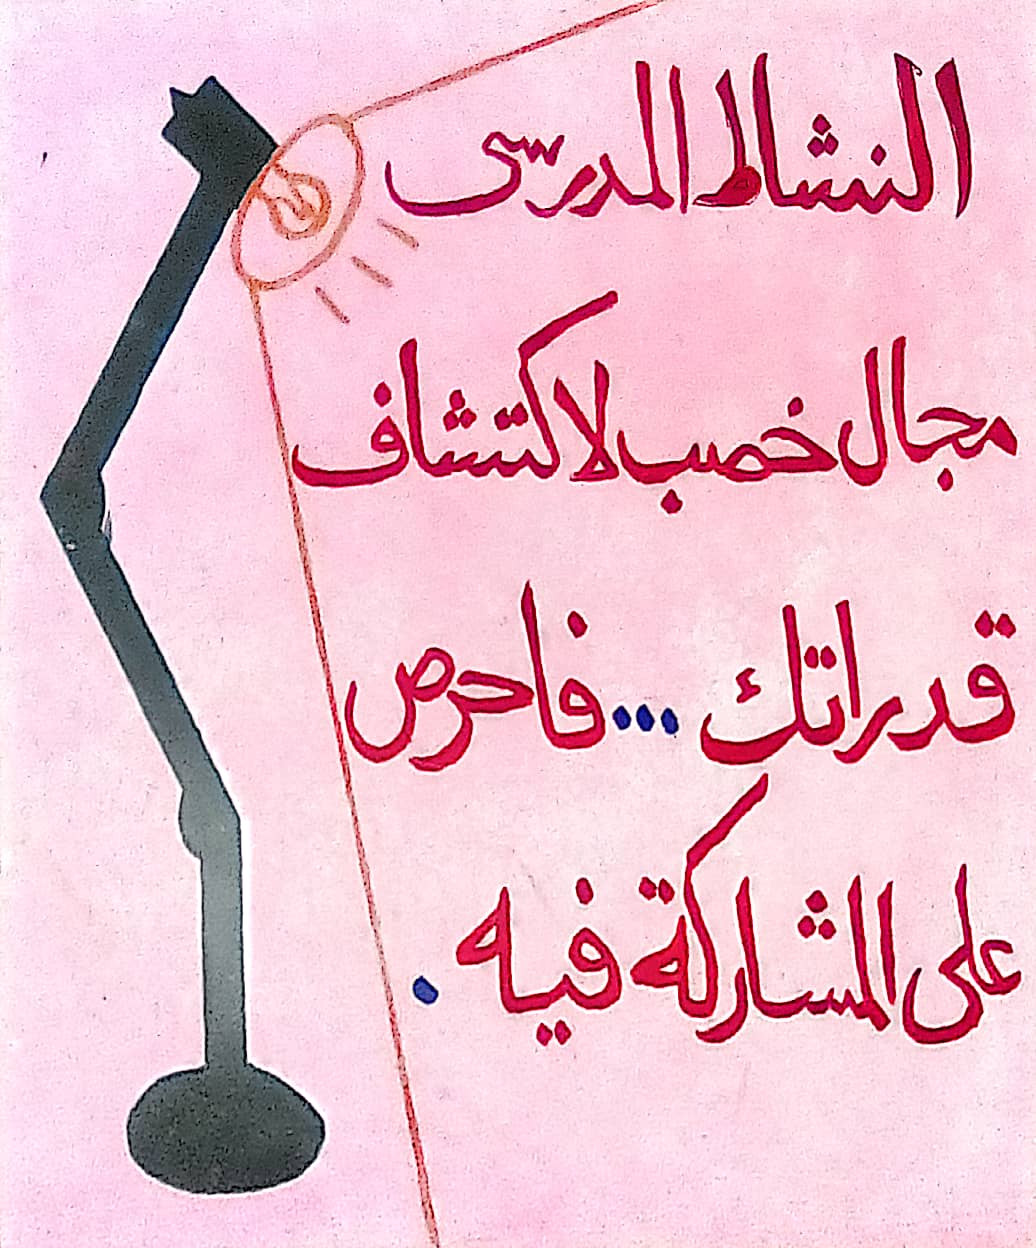 النشاط المدرسى
مجال خصب لاكتشاف
قدراتك ... فاحرص
على المشاركة فيه .